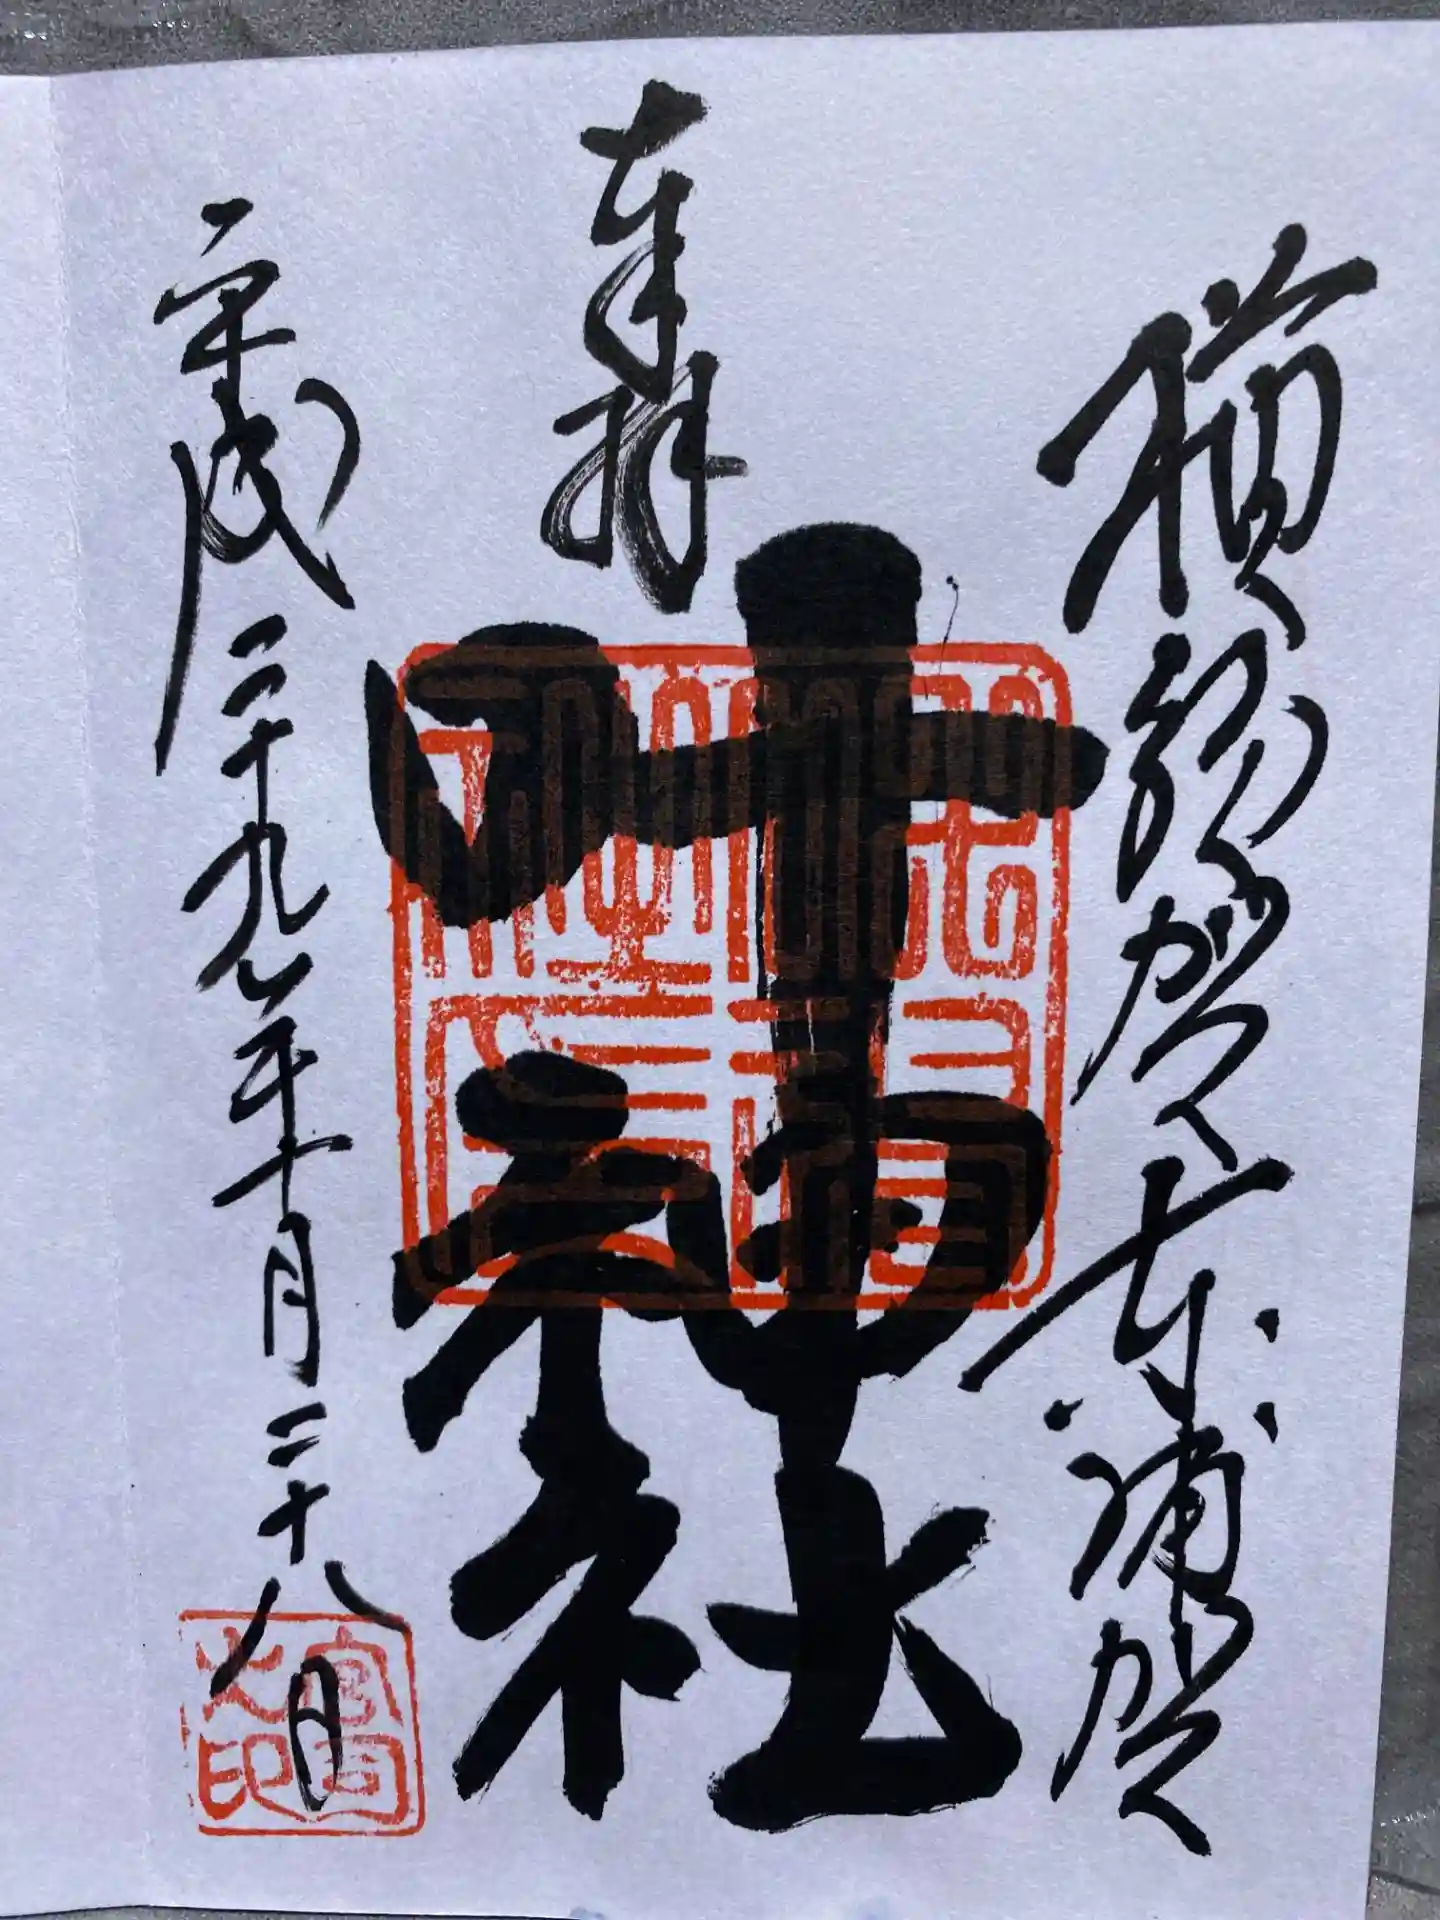 横須賀市東浦賀
奉拝
叶神社
平成二十九年十月二十八日
宮司之印